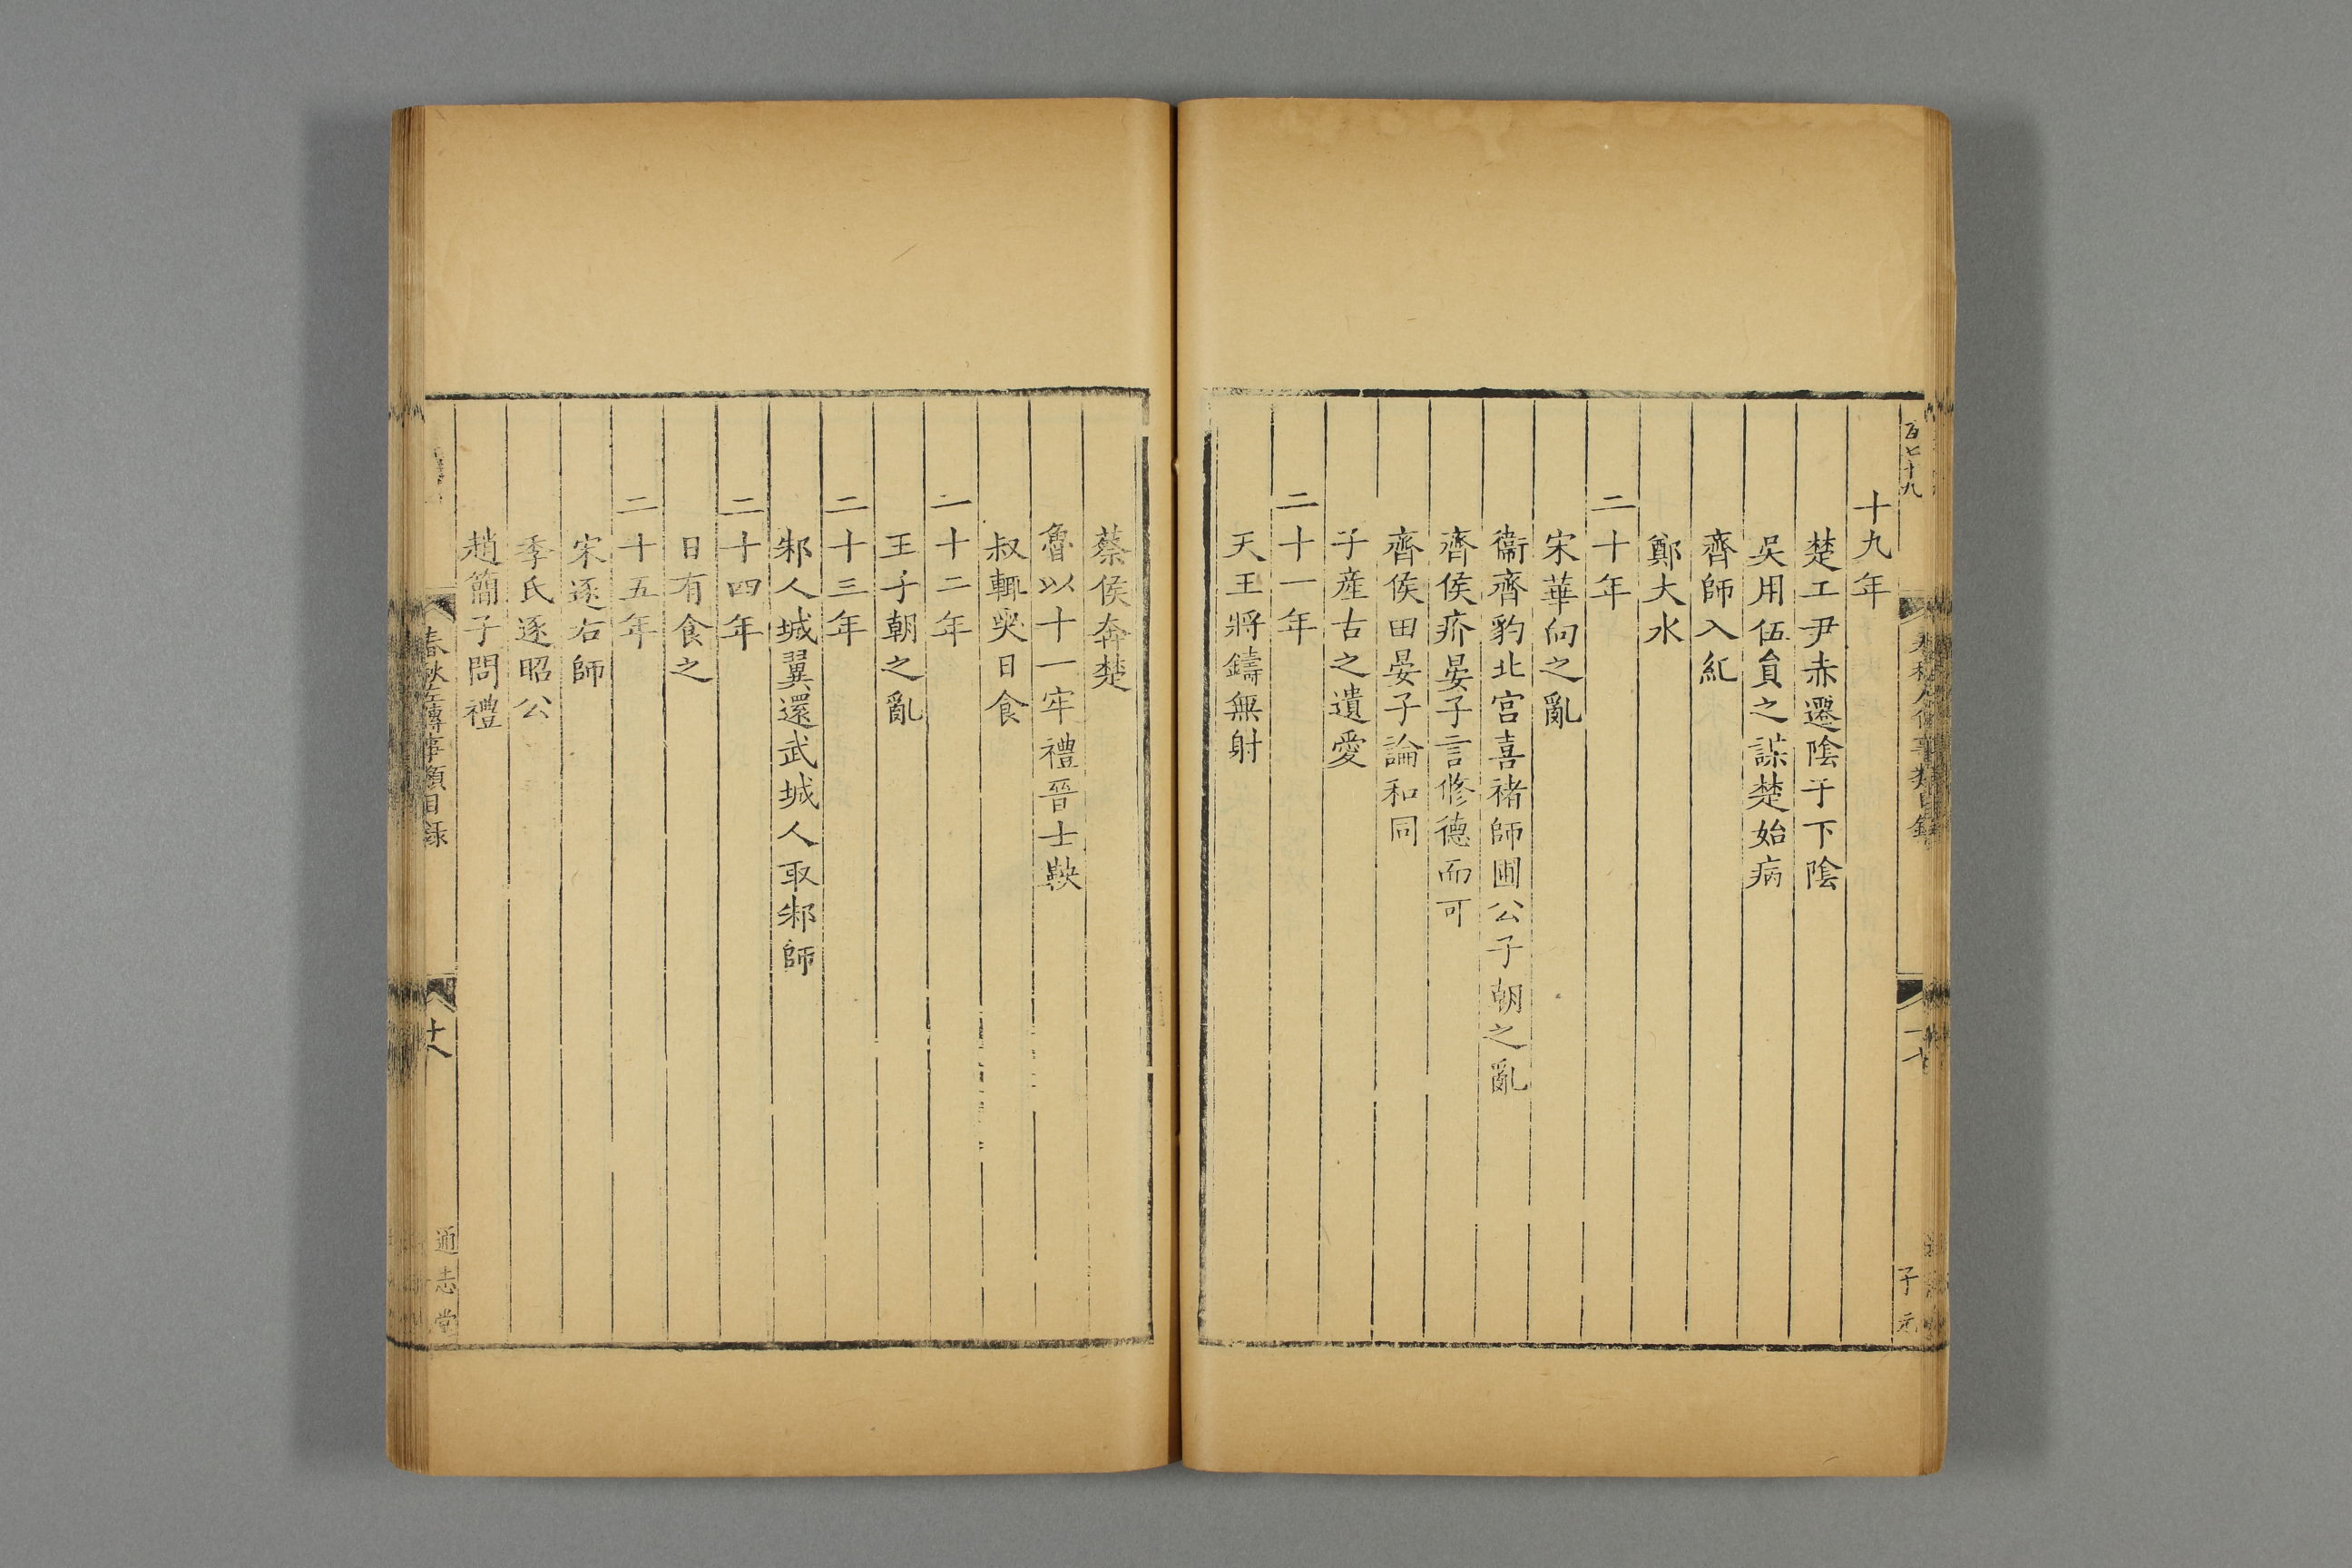 百七十九
十九年
楚工尹赤遷陰于下陰
吳用伍員之謀楚始病
齊師入紀
鄭大水
二十年
宋華向之亂
衞齊豹北宮喜褚師圃公子朝之亂
齊侯疥晏子言修德而可
齊侯田晏子論和同
子産古之遺愛
二十一年
天王將鑄無射
子元
蔡侯奔楚
魯以十一牢禮晉士鞅
叔輒哭日食
二十二年
王子朝之亂
二十三年
邾人城翼還武城人取邾師
二十四年
日有食之
二十五年
宋逐右師
季氏逐昭公
趙簡子問禮
春秋左傳事類目録
十八
通志堂